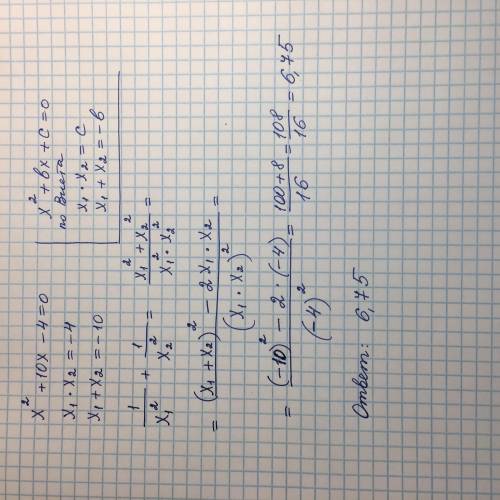 x² + 10x - 4 = 0
x₁ · x₂ = -4
x₁ + x₂ = -10
x² + bx + c = 0
по Виета
x₁ · x₂ = c
x₁ + x₂ = -b
1/x₁² + 1/x₂² = (x₁² + x₂²)/(x₁² · x₂²) =
= ((x₁ + x₂)² - 2x₁ · x₂)/(x₁ · x₂)² =
= ((-10)² - 2 · (-4))/(-4)² = (100 + 8)/16 = 108/16 = 6,75
Ответ: 6,75